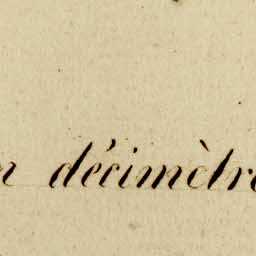 n décimètre